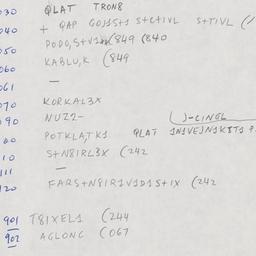 030 QLAT TRON8
040 + QAP GOJ1S+1 S+C+IVL S+TIVL (1
050 PODO,S+V1 (849 (840
060 KABLU,K (849
061 —
070 KORKAL3X
090 NUZ2- J-CING6
00 POTKLA,TK1 QLAT 1N1VEJN1K8T1
10 S+N8IRL3X (242
111 —
120 FARS+N8IR1V1D1S+IX (242
901 T8IXEL1 (244
902 AGLONC (067